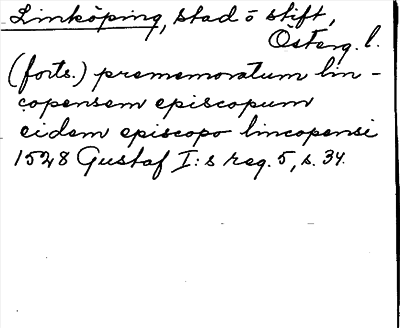 Linköping, stad o stift,
Österg. l.
(forts.) prememoratum lin-
copensem episcopum
eidem episcopo lincopensi
1528 Gustaf I:s reg. 5, s. 34.